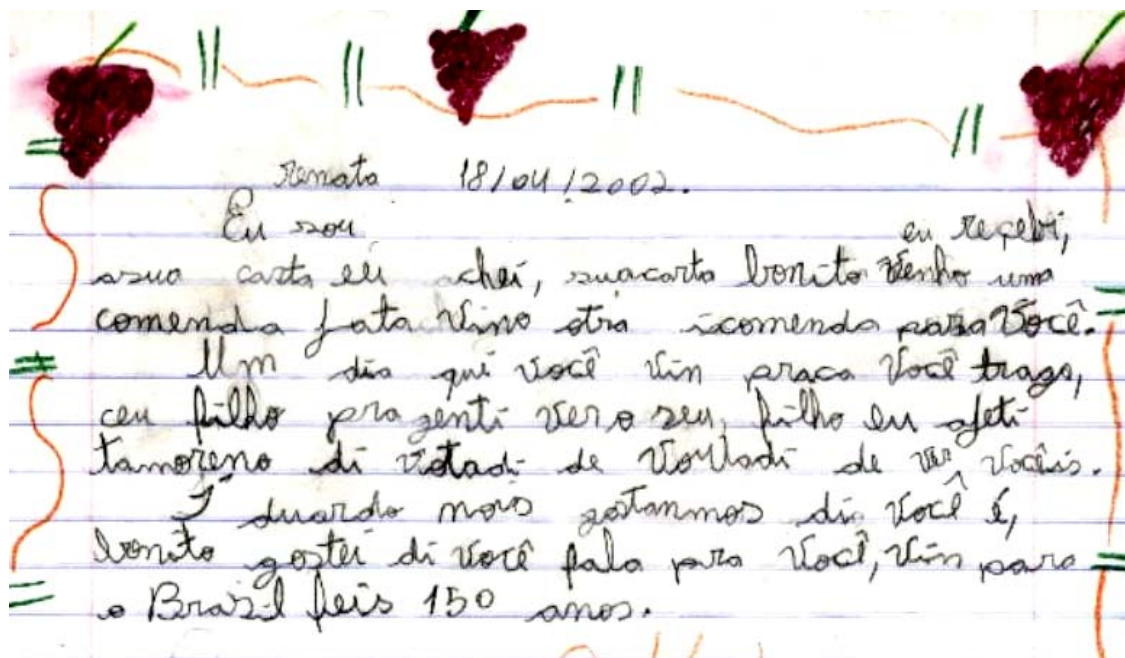 renata 18/04/2002.
Eu sou eu reçebi,
asua carta eu achei, suacarta bonito venho uma
comenda fata vino otra icomenda para você.
Um dia qui você vin praca você trago,
ceu filho pra genti ver o seu, filho eu
tamoreno di de de ver vocêis.
Iduardo nois gostanmos di você é,
bonito gostei di você fala para você, vin para
o Brazil feis 150 anos.